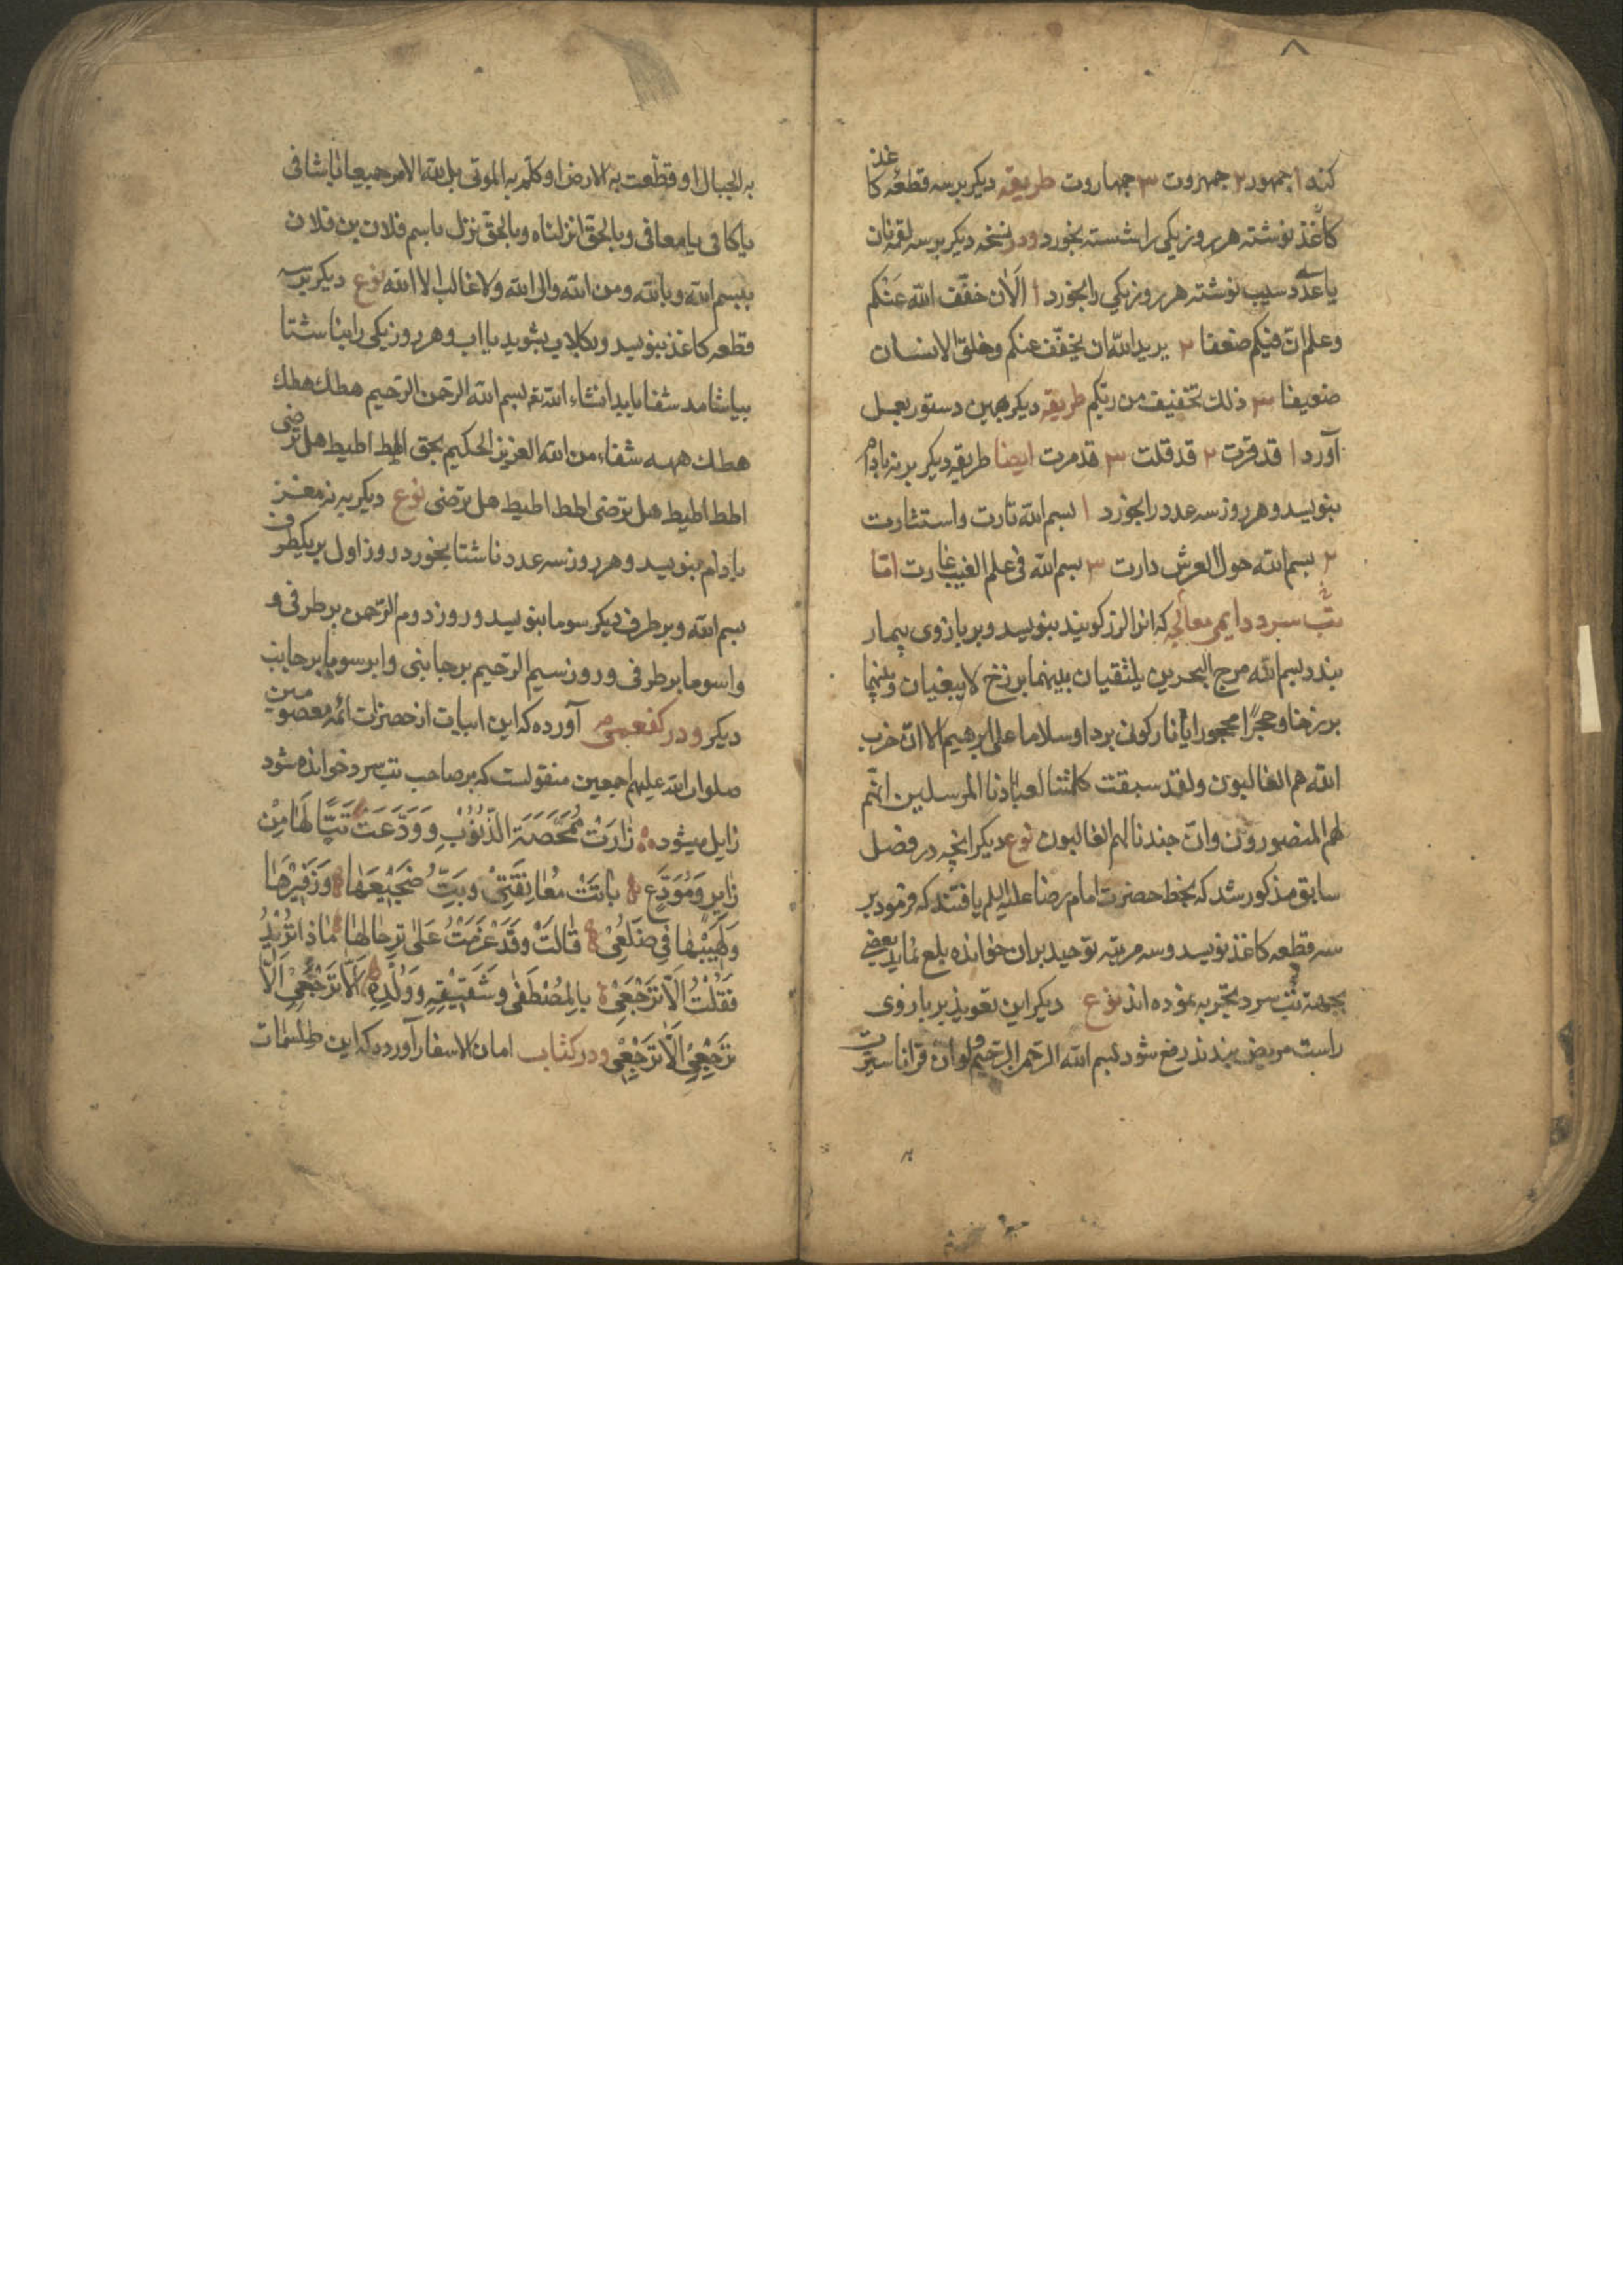 کند ۱ جمهور ۲ جمهروت ۳ جمهاروت طریقه دیکر بر سه قطعه کاغذ
کاغذ نوشته هر روز یکی را شسته بخورد و در نسخه دیکر بر سه لقمه نان
یا سه عدد سیب نوشته هر روز یکی را بخورد ۱ الآن خفّف الله عنکم
وعلم انّ فیکم ضعفا ۲ یرید الله ان یخفّف عنکم وخلق الانسان
ضعیفا ۳ ذلک تخفیف من ربّکم طریقه دیکر بهمین دستور بعمل
آورد ۱ قد قرّت ۲ قد قلت ۳ قد مرت ایضا طریقه دیکر بر نه بادام
بنویسد و هر روز سه عدد را بخورد ۱ بسم الله تارت واستثارت
۲ بسم الله حول العرش دارت ۳ بسم الله فی علم الغیب غارت امّا
تب سرد دایمی معالجه که انرا لرز کویند بنویسد و بر بازوی بیمار
بندد بسم الله مرج البحرین یلتقیان بینهما برزخ لا یبغیان وبینهما
برزخا وحجرًا محجورا یا نار کونی بردا وسلاما علی ابرهیم الا انّ حزب
الله هم الغالبون ولقد سبقت کلمتنا لعبادنا المرسلین انهّم
لهم المنصورون وانّ جندنا لهم الغالبون نوع دیکر انچه در فصل
سابق مذکور شد که بخط حضرت امام رضا علیه السلم یافتند که فرمود بر
سه قطعه کاغذ نویسد و سه مرتبه توحید بران خوانده بلع نماید بعضی
بجهة تب سرد تجربه نموده اند نوع دیکر این تعویذ بر بازوی
راست مریض بندند رفع شود بسم الله الرحمن الرّحیم ولو ان قرانا سیّرت
به الجبال او قطّعت به الارض او کلّم به الموتی بل لله الامر جمیعا یا شافی
یا کافی یا معافی وبالحقّ انزلناه وبالحقّ نزل باسم فلان بن فلان
ببسم الله وبالله ومن الله والی الله ولا غالب الا الله نوع دیکر بر سه
قطعه کاغذ بنویسد و بکلاب بشوید یا اب و هر روز یکی را بناشتا
بیاشامد شفا یابد انشاء الله تع بسم الله الرحمن الرّحیم هطک هطک
هطک ههه شفاء من الله العزیز الحکیم بحق اطط اطیط هل ترضی
اطط اطیط هل ترضی اطط اطیط هل ترضی نوع دیکر بر نه مغز
بادام بنویسد و هر روز سه عدد ناشتا بخورد روز اول بر یکطرف
بسم الله و بر طرف دیکر سوما بنویسد و روز دوم الرّحمن بر طرفی و
واسوما بر طرفی و روز سیم الرّحیم بر جانبی و ابرسوما بر جانب
دیکر و در کفعمی آورده که این ابیات از حضرات ائمه معصومین
صلوات الله علیهم اجمعین منقولست که بر صاحب تب سرد خوانده شود
زایل میشود زَارَتْ مُمَحِّصَةَ الذُّنُوْبِ وَوَدَّعَتْ تَبًّا لَهَا مِنْ
زَایِرٍ وَمُوَدِّعٍ بَاتَتْ مُعَانِقَتِیْ وَبِتُّ ضَجِیْعَهَا وَزَفِیْرُهَا
وَلَهِیْبُهَا فِی ضَلعِیْ قَالَتْ وَقَدْ عَزَمَتْ عَلیٰ تِرحَالِهَا مَاذَا تُرِیْدُ
فَقُلْتُ اَلاَّ تَرْجِعِیْ بِالمُصْطَفیٰ وَشَقِیْقِهِ وَوُلْدِهِ اَلاَّ تَرْجِعِیْ اَلاَّ
تَرْجِعِیْ اَلاَّ تَرْجِعِیْ و در کتاب امان الاسفار آورده که این طلسمات